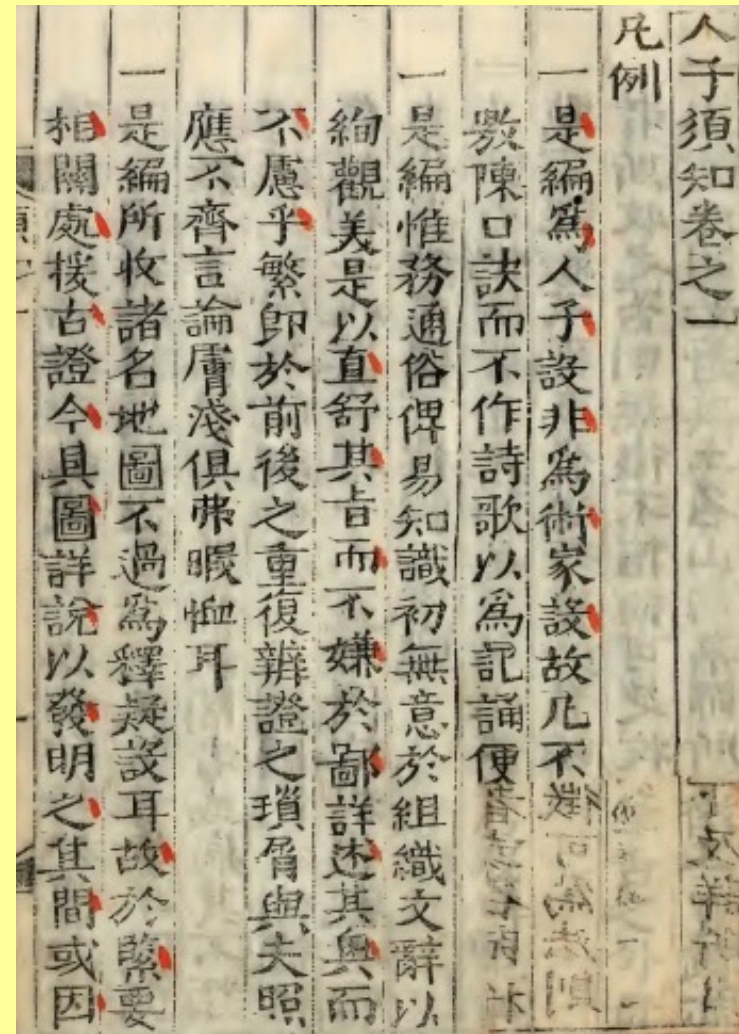 人子須知卷之一
凡例
一是編爲人子設非爲術家設故凡不
敷陳口訣而不作詩歌以爲記誦便
一是編惟務通俗俾易知識初無意於組織文辭以
絢觀美是以直舒其旨而不嫌於鄙詳述其奥而
不慮乎繁即於前後之重復辨證之瑣屑與夫照
應不齊言論膚淺俱弗暇恤耳
一是編所收諸名地圖不過爲釋疑設耳故於緊要
相關處援古證今具圖詳説以發明之其間或因